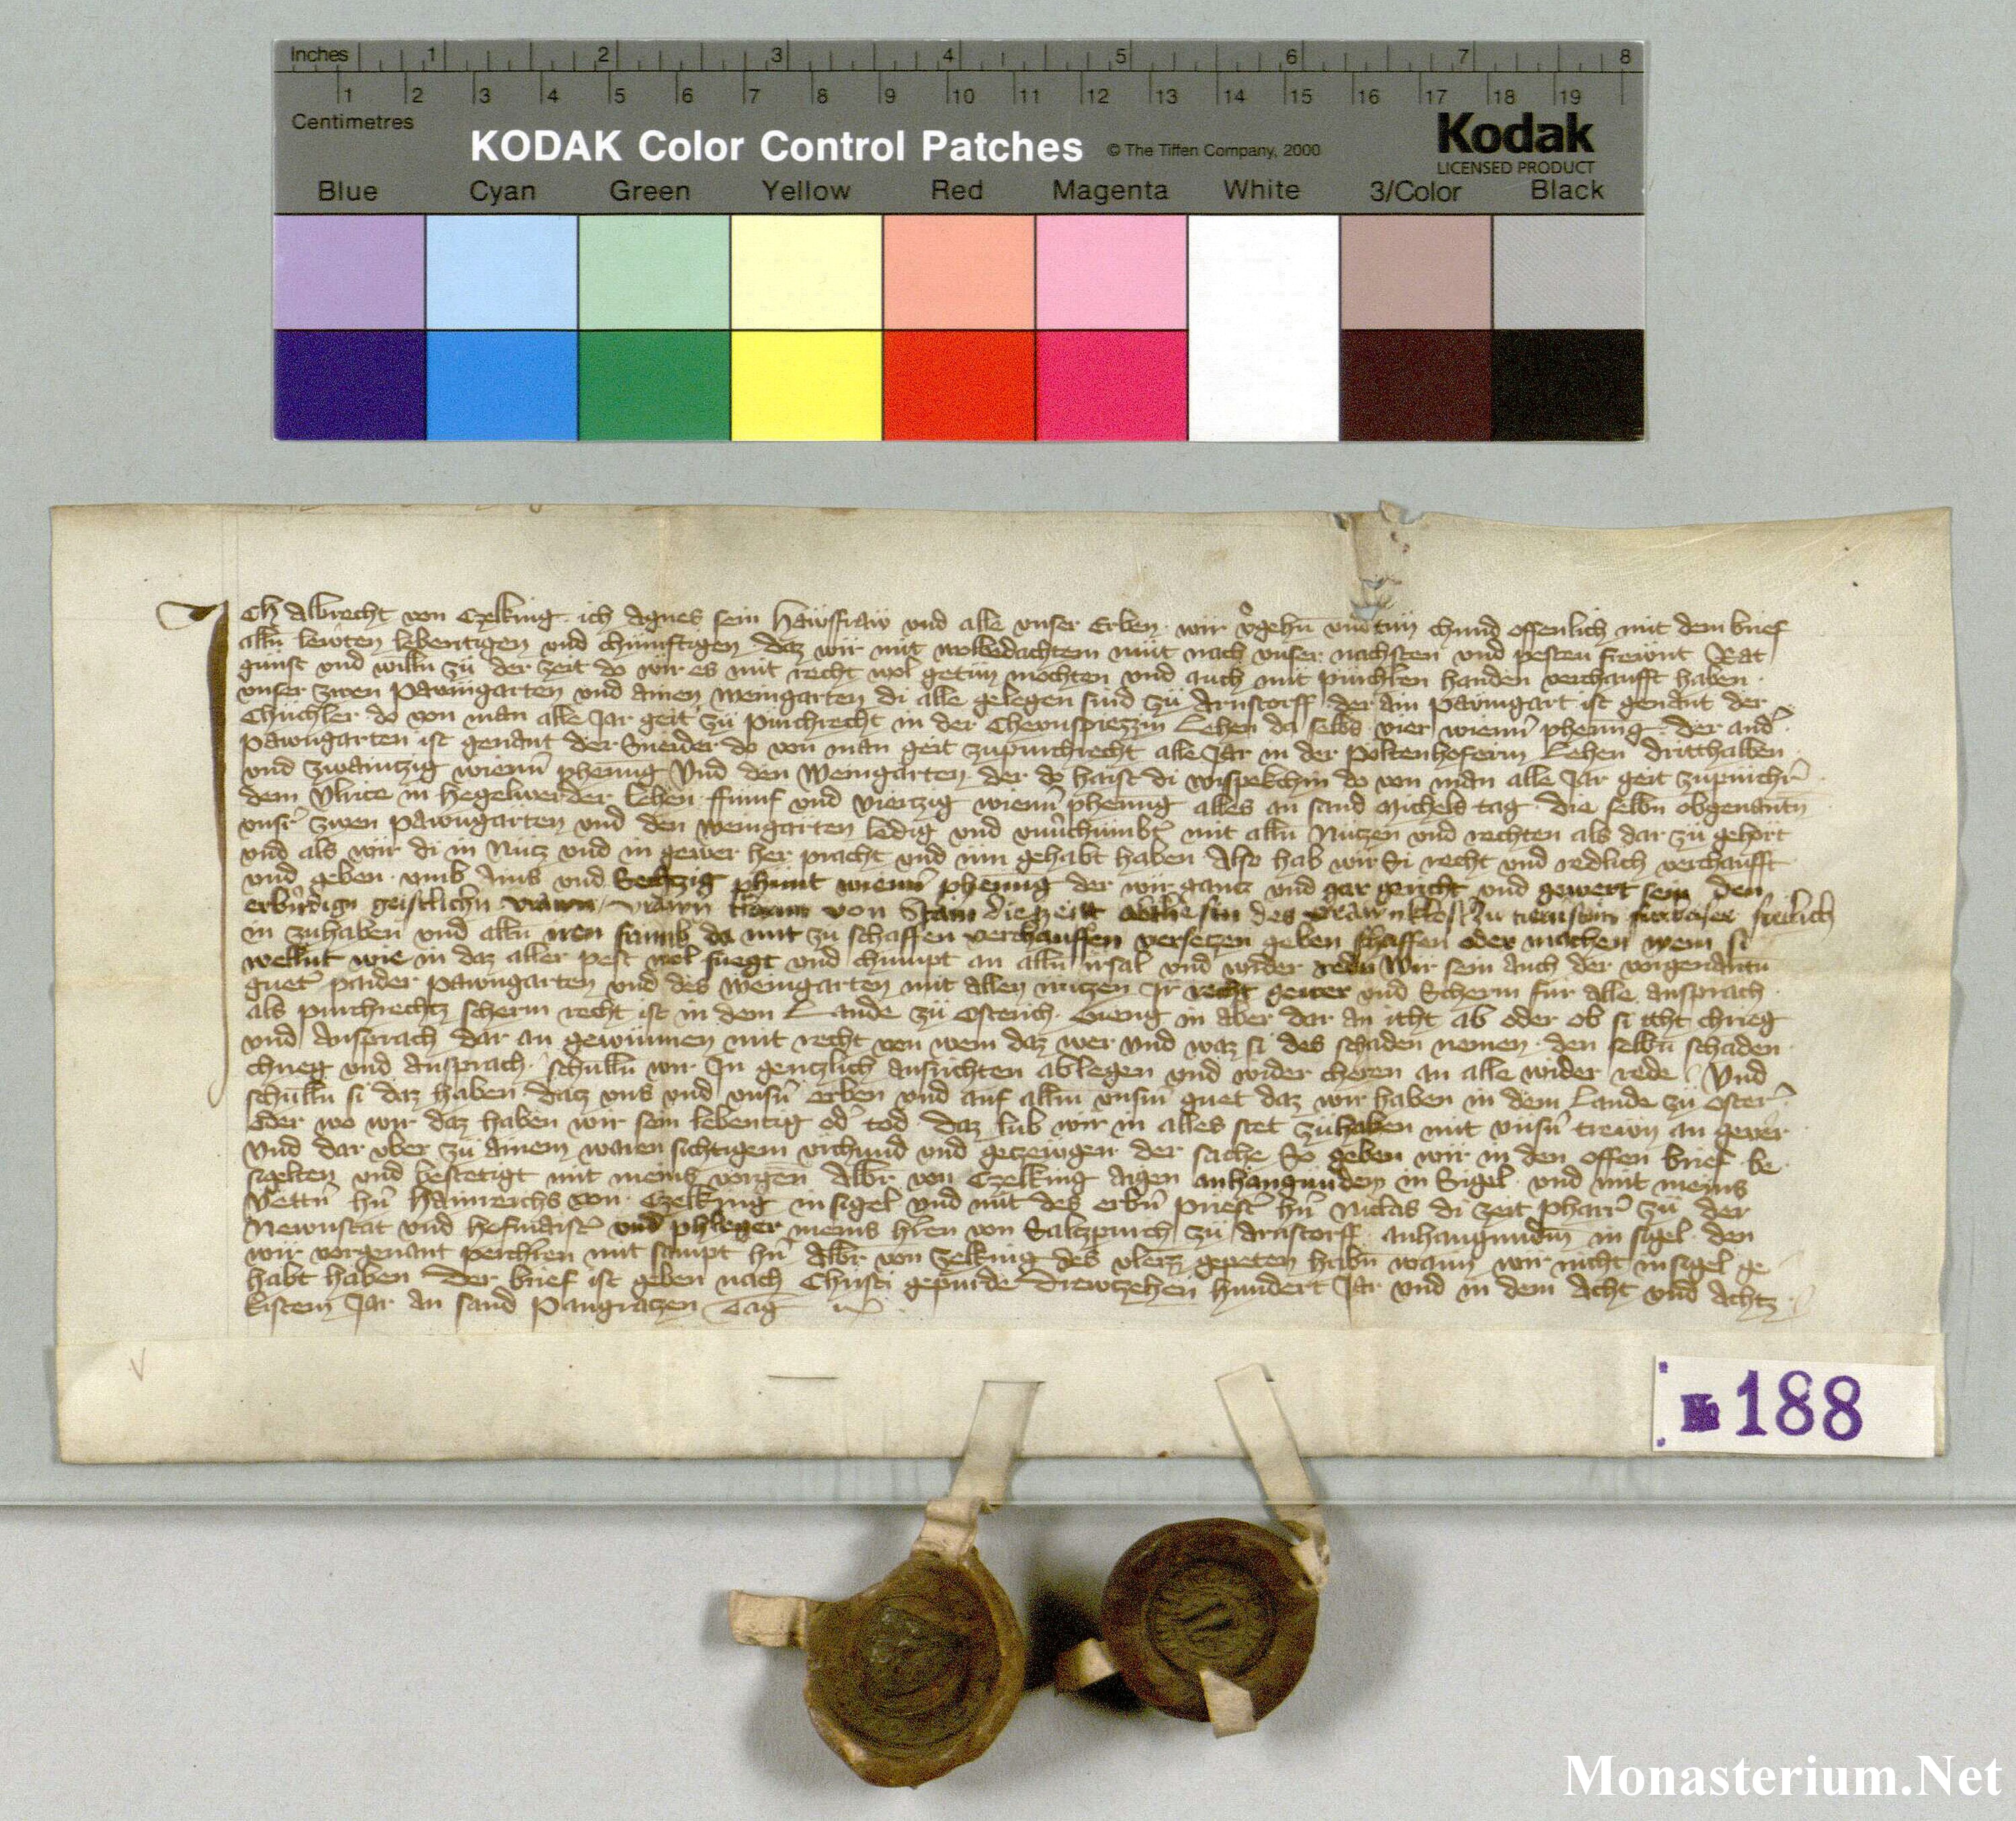 Inches 1 2 3 4 5 6 7 8
1 2 3 4 5 6 7 8 9 10 11 12 13 14 15 16 17 18 19
Centimetres
KODAK Color Control Patches © The Tiffen Company, 2000 Kodak
LICENSED PRODUCT
Blue Cyan Green Yellow Red Magenta White 3/Color Black
Ich Albrecht von Czelking ich Agnes sein hawsfraw vnd alle vnser Erben wir v̾gehn̄ vnd tün chund offenlich mit dem brief
alln̄ lewten lebentigen vnd chünftigen daz wir mit wolbedachtem müt nach vnser nachsten vnd pesten frewnt Rat
gunst vnd willn̄ zü der zeit do wir es mit recht wol getün mochten vnd auch mit purchhren handen verchaufft haben
vnser zwen pawmgarten vnd ainen weingarten di alle gelegen sind zü Arnstorff der ain pawmgart ist genant der
Chüchler do von man alle Jar geit zü purchrecht in der Lehen da selbs vier wienn̄ phening der and̾
pawmgarten ist genant der Sneider do von man geit zupurchrecht alle Jar in der Lehen dritthalben
vnd zwaintzig wienn̄ phening Vnd den Weingarten der do haist di do von man alle Jar geit
dem Vlrice in lehen fümf vnd vierzig wienn̄ phening alles an sand Michels tag die selbn̄ obgenantn̄
vnsr̄ zwen pawmgarten vnd den weingarten ledig vnd mit alln̄ Nützen vnd rechten als dar zü gehört
vnd als wir di in Nutz vnd in gewer her pracht vnd inn gehabt haben Also hab wir Si recht vnd redlich verchaufft
vnd geben vmb Ains vnd Sechtzig phunt wienn̄ phening der wir gancz vnd gar gericht vnd gewert sein den
erbirdign geistlichn̄ vrawn von Stain die zeit abthessin des
in zuhaben vnd alln̄ iren frumb da mit zu schaffen verchauffen versetzen geben schaffen oder machen wem si
wellnt wie in daz aller pest wol fuegt vnd chumpt an alln̄ irsal vnd wider redn Wir sein auch der vorgenantn̄
guet̾ paider pawmgarten vnd des weingarten mit allen nutzen Ir recht gewer vnd Scherm für alle ansprach
als purchrechtz scherm recht ist in dem Lande zü Osterich Gieng in aber dar an icht ab oder ob si icht chrieg
vnd Ansprach dar an gewunnen mit recht von wem daz wer vnd waz si des schaden nemen den selbn̄ schaden
chrieg vnd Ansprach schulln̄ wir In gentzlich ausrichten ablegen vnd wider cheren an alle wider rede Vnd
schulln̄ si daz haben datz vns vnd vnsn̄ erben vnd auf allm̄ vnsm̄ guet daz wir haben in dem Lande zu Oster̄
Oder wo wir daz haben wir sein lebentig od̾ tod daz lub wir in alles stet zühaben mit vnsn̄ trewn an gever
Vnd dar vber zü ainem waren sichtigem vrchund vnd getzewgen der sache So geben wir in den offen brief be
sigelten vnd bestetigt mit meins vorgen̄ Albr̄ von Czelking aigen anhangundem in Sigel vnd mit meins
Vettn̄ hn̄ Hainreichs von Czelking insigel vnd mit des erbn̄ priest̾ hn̄ Niclas di zeit pharr̄ zü der
Newnstat vnd hofmaist̾ vnd phleger meins hren von Saltzpurch zü Arnstorff anhangundm̄ in sigel den
wir vorgenant mit sampt hn̄ Albr̄ von Zelking des gepeten habn̄ wann wir nicht insigel ge
habt haben Der brief ist geben nach Christi gepurde Drewtzehen hundert Jar vnd in dem Acht vnd Achtz
kistem Jar an sand Pangratzen Tag
№ 188
Monasterium.Net